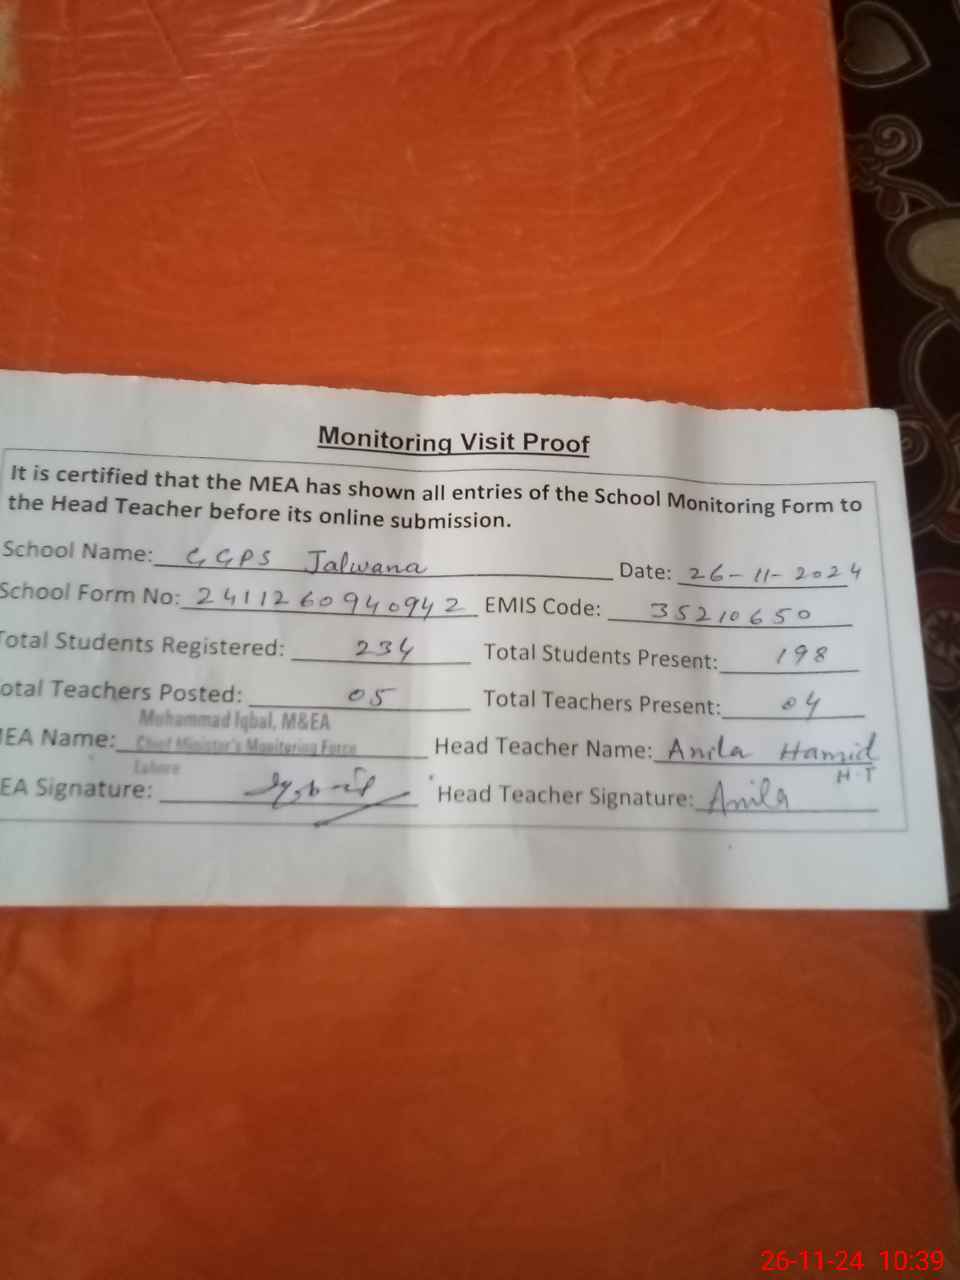 Monitoring Visit Proof
It is certified that the MEA has shown all entries of the School Monitoring Form to
the Head Teacher before its online submission.
School Name: GGPS Jalwana Date: 26-11-2024
School Form No: 2411260940942 EMIS Code: 35210650
Total Students Registered: 234 Total Students Present: 198
otal Teachers Posted: 05 Total Teachers Present: 04
Muhammad Iqbal, M&EA
EA Name: Chief Minister's Monitoring Force Head Teacher Name: Anila Hamid
Lahore H.T
EA Signature: Head Teacher Signature: Anila
26-11-24 10:39